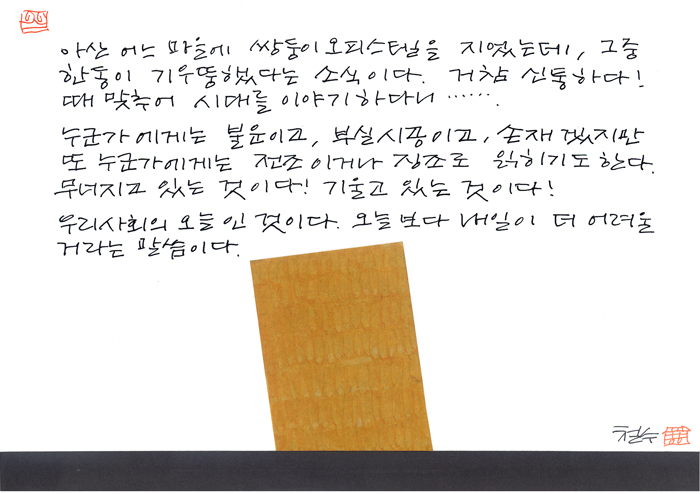 아산 어느 마을에 쌍둥이오피스텔을 지었는데, 그중
한동이 기우뚱했다는 소식이다. 거참 신통하다!
때 맞추어 시대를 이야기하다니…….
누군가에게는 불운이고, 부실시공이고, 손재겠지만
또 누군가에게는 전조이거나 징조로 읽히기도 한다.
무너지고 있는 것이다! 기울고 있는 것이다!
우리사회의 오늘인 것이다. 오늘보다 내일이 더 어려울
거라는 말씀이다.
철수